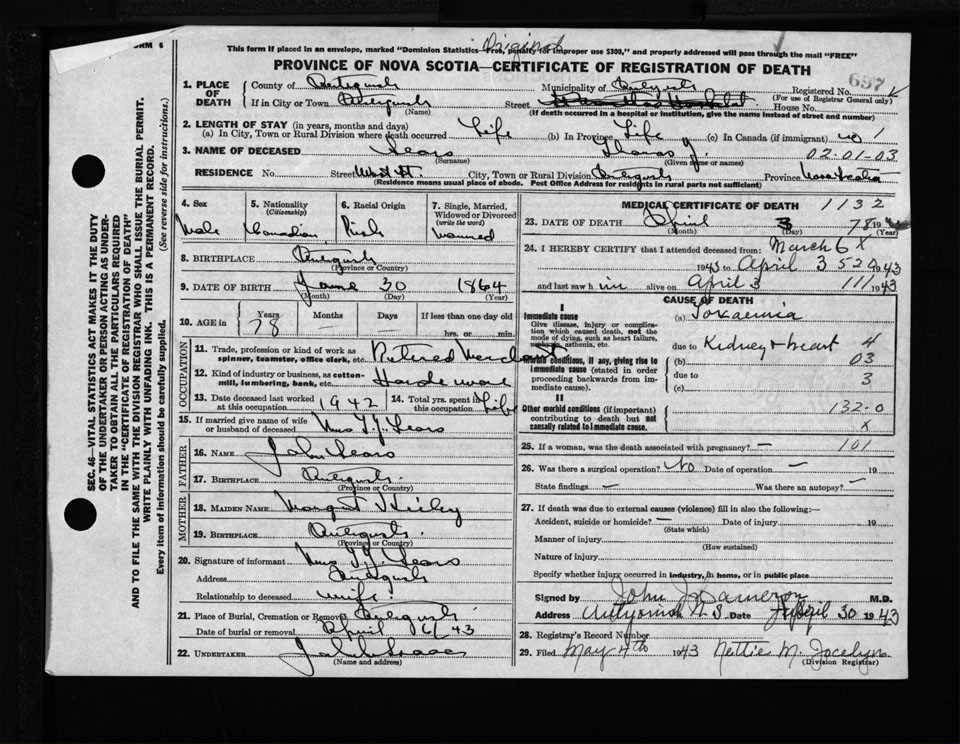 ORM 6
This form if placed in an envelope, marked "Dominion Statistics—Free, penalty for improper use $300," and properly addressed will pass through the mail "FREE"
Original
PROVINCE OF NOVA SCOTIA—CERTIFICATE OF REGISTRATION OF DEATH
697
1. PLACE OF DEATH County of Antigonish Municipality of Antigonish Registered No.
(For use of Registrar General only)
If in City or Town Antigonish Street House No.
(Name) (If death occurred in a hospital or institution, give the name instead of street and number)
2. LENGTH OF STAY (in years, months and days)
(a) In City, Town or Rural Division where death occurred Life (b) In Province Life (c) In Canada (if immigrant) no 1
3. NAME OF DECEASED Sears Thomas J. 02-01-03
(Surname) (Given name or names)
RESIDENCE No. Street West St. City, Town or Rural Division Antigonish Province Nova Scotia
(Residence means usual place of abode. Post Office Address for residents in rural parts not sufficient)
4. Sex Male
5. Nationality (Citizenship) Canadian
6. Racial Origin Irish
7. Single, Married, Widowed or Divorced (write the word) Married
8. BIRTHPLACE Antigonish
(Province or Country)
9. DATE OF BIRTH June 30 1864
(Month) (Day) (Year)
10. AGE in Years Months Days If less than one day old
78 — — hrs. or min.
OCCUPATION
11. Trade, profession or kind of work as spinner, teamster, office clerk, etc. Retired Merchant
12. Kind of industry or business, as cotton-mill, lumbering, bank, etc. Hardware
13. Date deceased last worked at this occupation 1942 14. Total yrs. spent in this occupation Life
15. If married give name of wife or husband of deceased Mrs T.J. Sears
FATHER
16. NAME John Sears
17. BIRTHPLACE Antigonish
(Province or Country)
MOTHER
18. MAIDEN NAME Margret
19. BIRTHPLACE Antigonish
(Province or Country)
20. Signature of informant Mrs T.J. Sears
Address Antigonish
Relationship to deceased wife
21. Place of Burial, Cremation or Removal Antigonish
Date of burial or removal April 6/43
22. UNDERTAKER John
(Name and address)
MEDICAL CERTIFICATE OF DEATH 1132
23. DATE OF DEATH April 3 78 19
(Month) (Day) (Year)
24. I HEREBY CERTIFY that I attended deceased from: March 6 X
1943 to April 3 520 1943
and last saw h im alive on April 3 111 1943
CAUSE OF DEATH
I
Immediate cause
Give disease, injury or complication which caused death, not the mode of dying, such as heart failure, asphyxia, asthenia, etc.
(a) Toxaemia
due to Kidney + heart 4
Morbid conditions, if any, giving rise to immediate cause (stated in order proceeding backwards from immediate cause).
(b) 03
due to 3
(c)
II
Other morbid conditions (if important) contributing to death but not causally related to immediate cause.
132-0
X
25. If a woman, was the death associated with pregnancy? — 101
26. Was there a surgical operation? No Date of operation — 19
State findings — Was there an autopsy? —
27. If death was due to external causes (violence) fill in also the following:—
Accident, suicide or homicide? — Date of injury 19
(State which)
Manner of injury
(How sustained)
Nature of injury
Specify whether injury occurred in industry, in home, or in public place
Signed by John J. Cameron M.D.
Address Antigonish N.S. Date April 30 1943
28. Registrar's Record Number
29. Filed May 4th 1943 Nettie M. Jocelyn
(Division Registrar)
SEC. 46—VITAL STATISTICS ACT MAKES IT THE DUTY
OF THE UNDERTAKER OR PERSON ACTING AS UNDER-
TAKER TO OBTAIN ALL THE PARTICULARS REQUIRED
IN THE "CERTIFICATE OF REGISTRATION OF DEATH"
AND TO FILE THE SAME WITH THE DIVISION REGISTRAR WHO SHALL ISSUE THE BURIAL PERMIT.
WRITE PLAINLY WITH UNFADING INK. THIS IS A PERMANENT RECORD.
Every item of information should be carefully supplied. (See reverse side for instructions.)